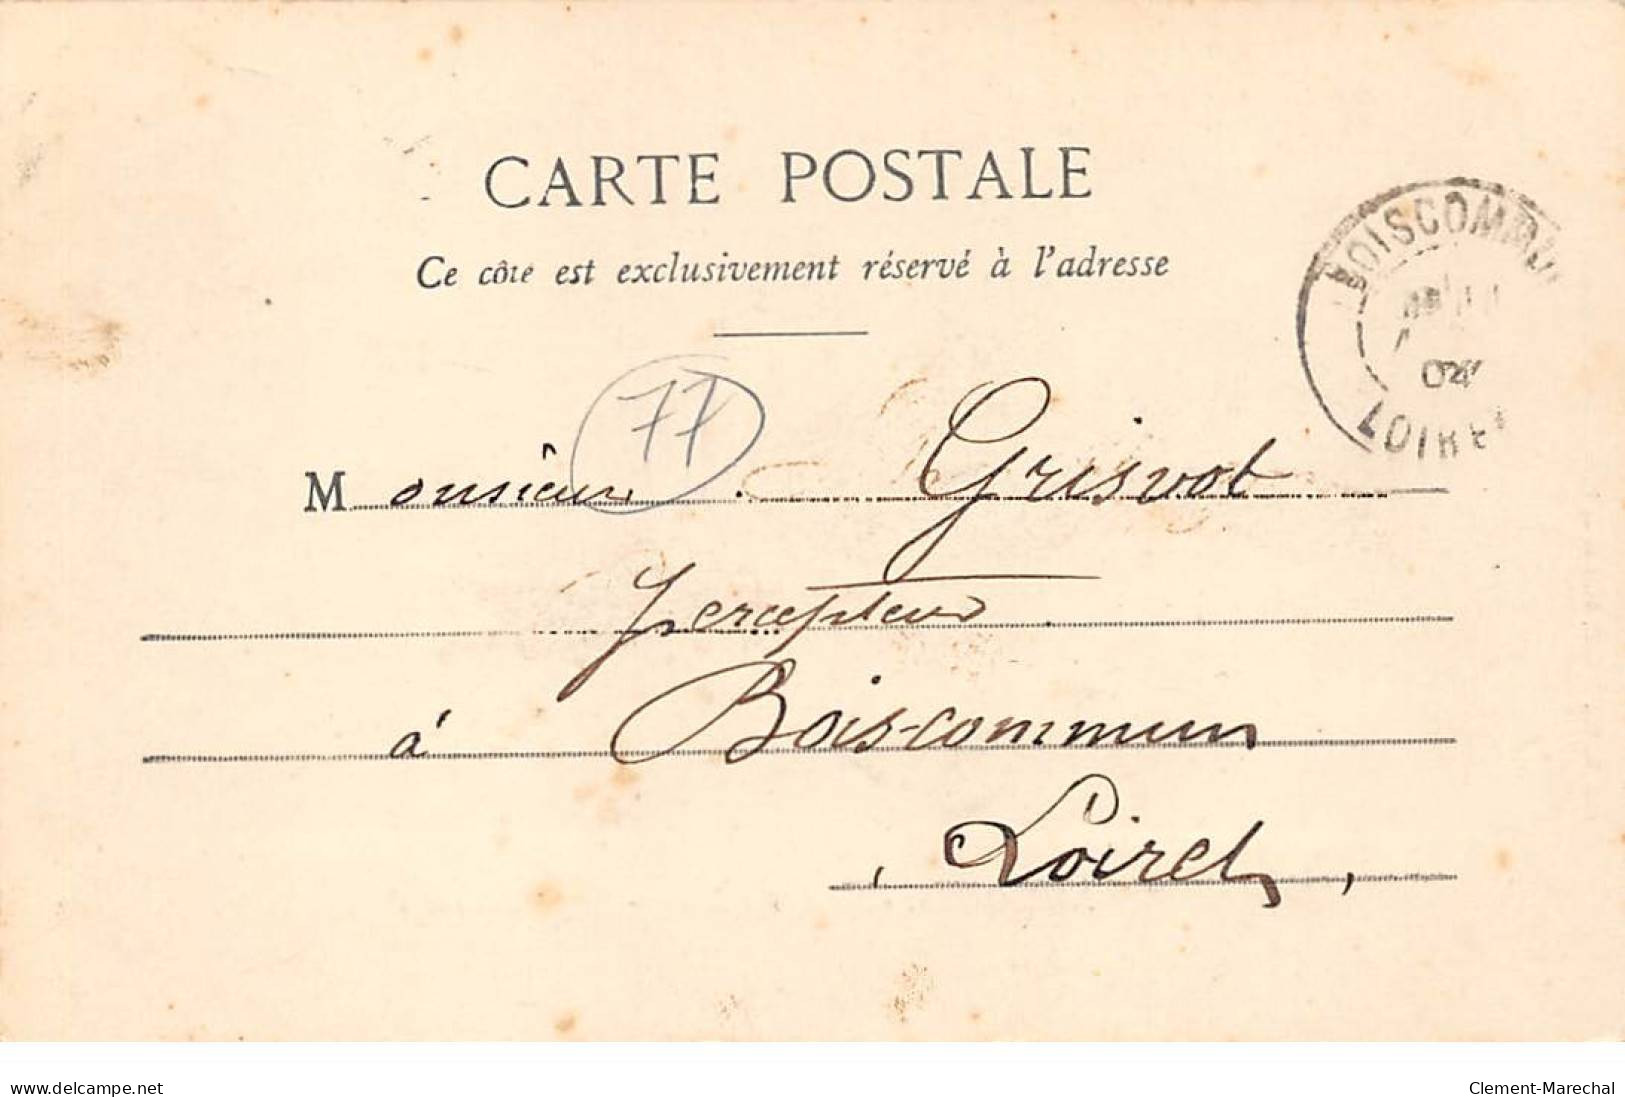 CARTE POSTALE
Ce côté est exclusivement réservé à l'adresse
BOISCOMMUN
04
LOIRET
77
Monsieur Grisvot
percepteur
à Boiscommun
Loiret
www.delcampe.net
Clement-Marechal